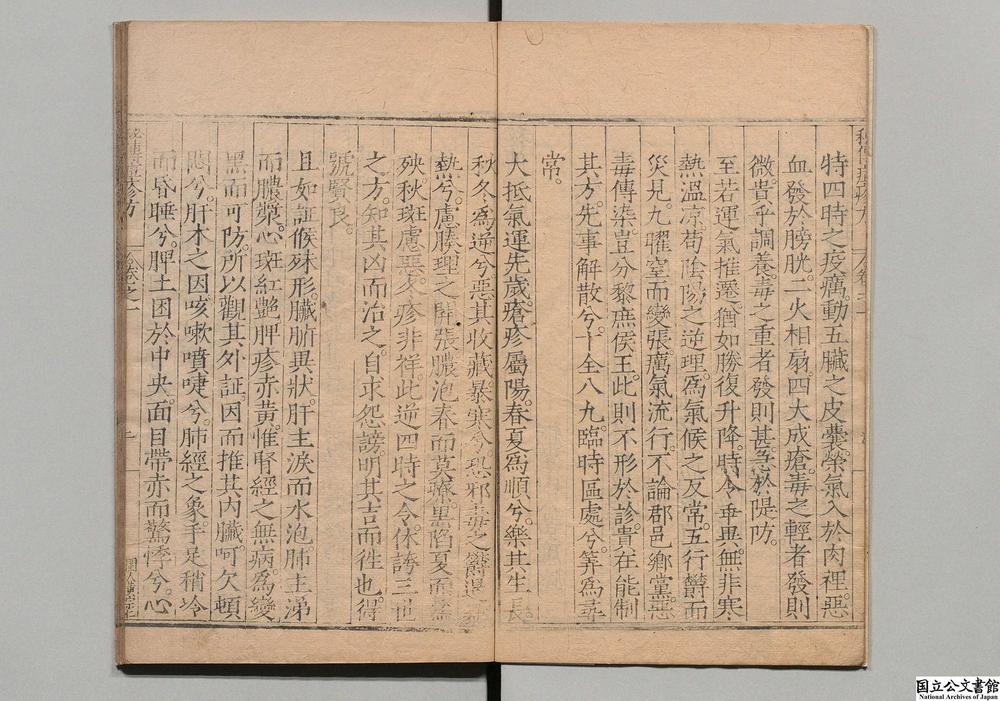 特四時之疫癘。動五臟之皮囊。榮氣入於肉裡。惡
血發於膀胱。二火相扇。四大成瘡。毒之輕者發則
微。貴乎調養。毒之重者發則甚。急於隄防。
至若運氣推遷。猶如勝復升降。時令乖異。無非寒
熱溫凉。苟陰陽之逆理。為氣候之反常。五行欝而
災見。九曜窒而變張。癘氣流行。不論郡邑鄉黨。惡
毒傳染。豈分黎庶侯王。此則不形於診。實在能制
其方。先事解散兮。十全八九。臨時區處兮。筭為尋
常。
大抵氣運先歲。瘡疹屬陽。春夏為順兮。樂其生長。
秋冬為逆兮。惡其收藏。暴寒兮。恐邪毒之欝遏。
熱兮。慮腠理之開張。膿泡春而莫療。黑陷夏而
殃。秋斑慮惡。冬疹非祥。此逆四時之令。休誇三世
之方。知其凶而治之。自求怨謗。明其吉而徃也。得
號賢良。
且如証候殊形。臟腑異狀。肝主淚而水泡。肺主涕
而膿漿。心斑紅艷。脾疹赤黃。惟腎經之無病。為變
黑而可防。所以觀其外証。因而推其內臟。呵欠頓
悶兮。肝木之因。咳嗽噴嚏兮。肺經之象。手足稍冷
而昏睡兮。脾土困於中央。面目帶赤而驚悸兮。心
卷之一
國立公文書館
National Archives of Japan